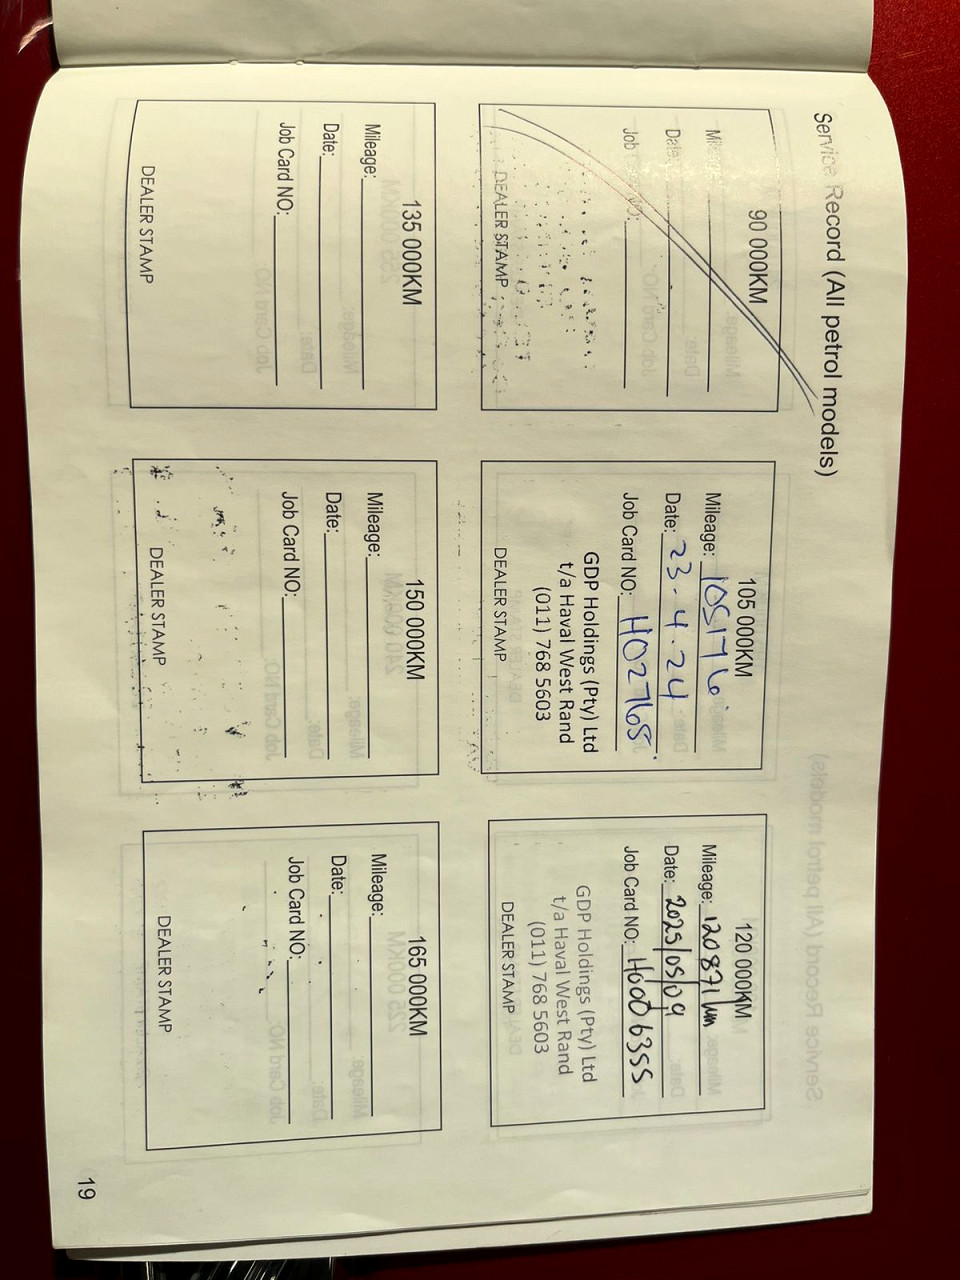 Service Record (All petrol models)
90 000KM
Mileage:
Date:
Job Card NO:
DEALER STAMP
105 000KM
Mileage: 105176
Date: 23.4.24
Job Card NO: H02765
GDP Holdings (Pty) Ltd
t/a Haval West Rand
(011) 768 5603
DEALER STAMP
120 000KM
Mileage: 120871km
Date: 2025/05/09
Job Card NO: H0006355
GDP Holdings (Pty) Ltd
t/a Haval West Rand
(011) 768 5603
DEALER STAMP
135 000KM
Mileage:
Date:
Job Card NO:
DEALER STAMP
150 000KM
Mileage:
Date:
Job Card NO:
DEALER STAMP
165 000KM
Mileage:
Date:
Job Card NO:
DEALER STAMP
19